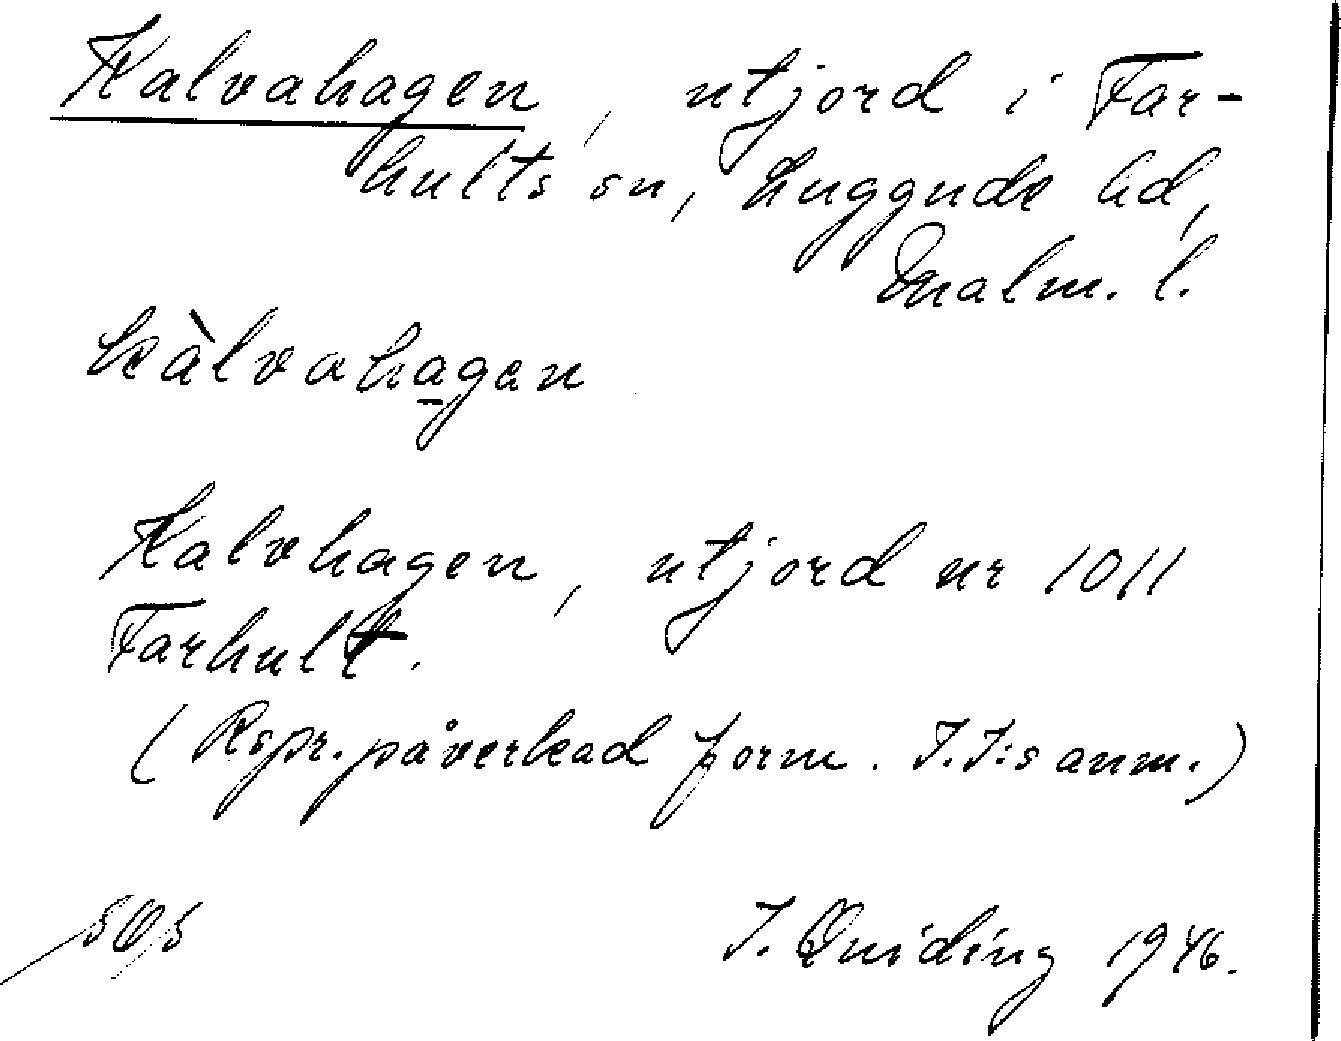 Kalvahagen, utjord i Far-
hults sn, Luggude hd,
Malm. l.
kàlvahagen
Kalvhagen, utjord nr 1011
Farhult.
(Rspr. påverkad form. I.I:s anm.)
I. Quiding 1946.